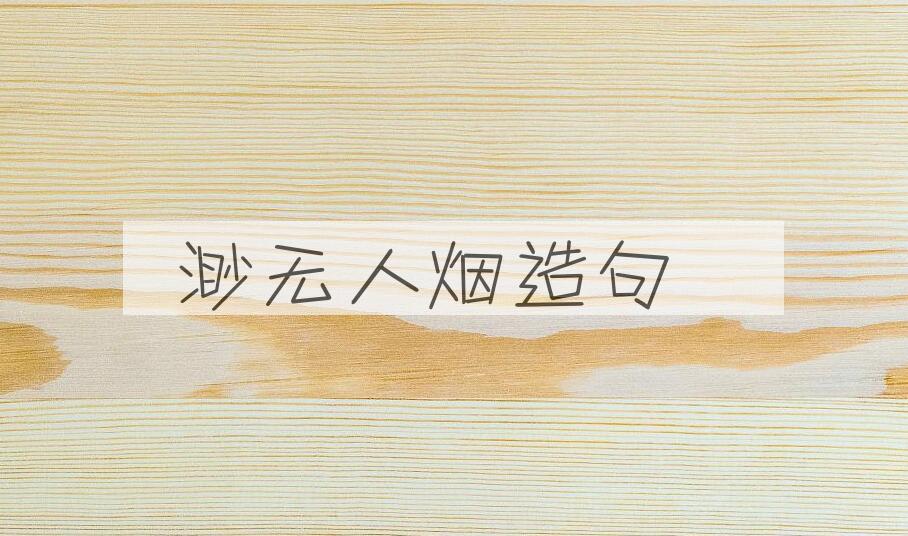 渺无人烟造句